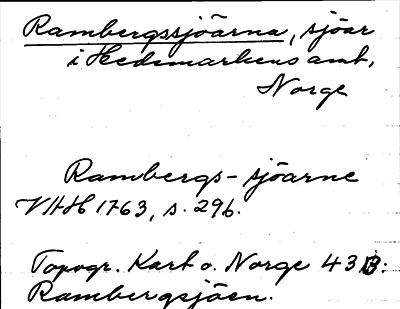 Rambergssjöarna, sjöar
i Hedemarkens amt,
Norge
Rambergs-sjöarne
VHH 1763, s. 296.
Topogr. Kart o. Norge 43B:
Rambergsjöen.